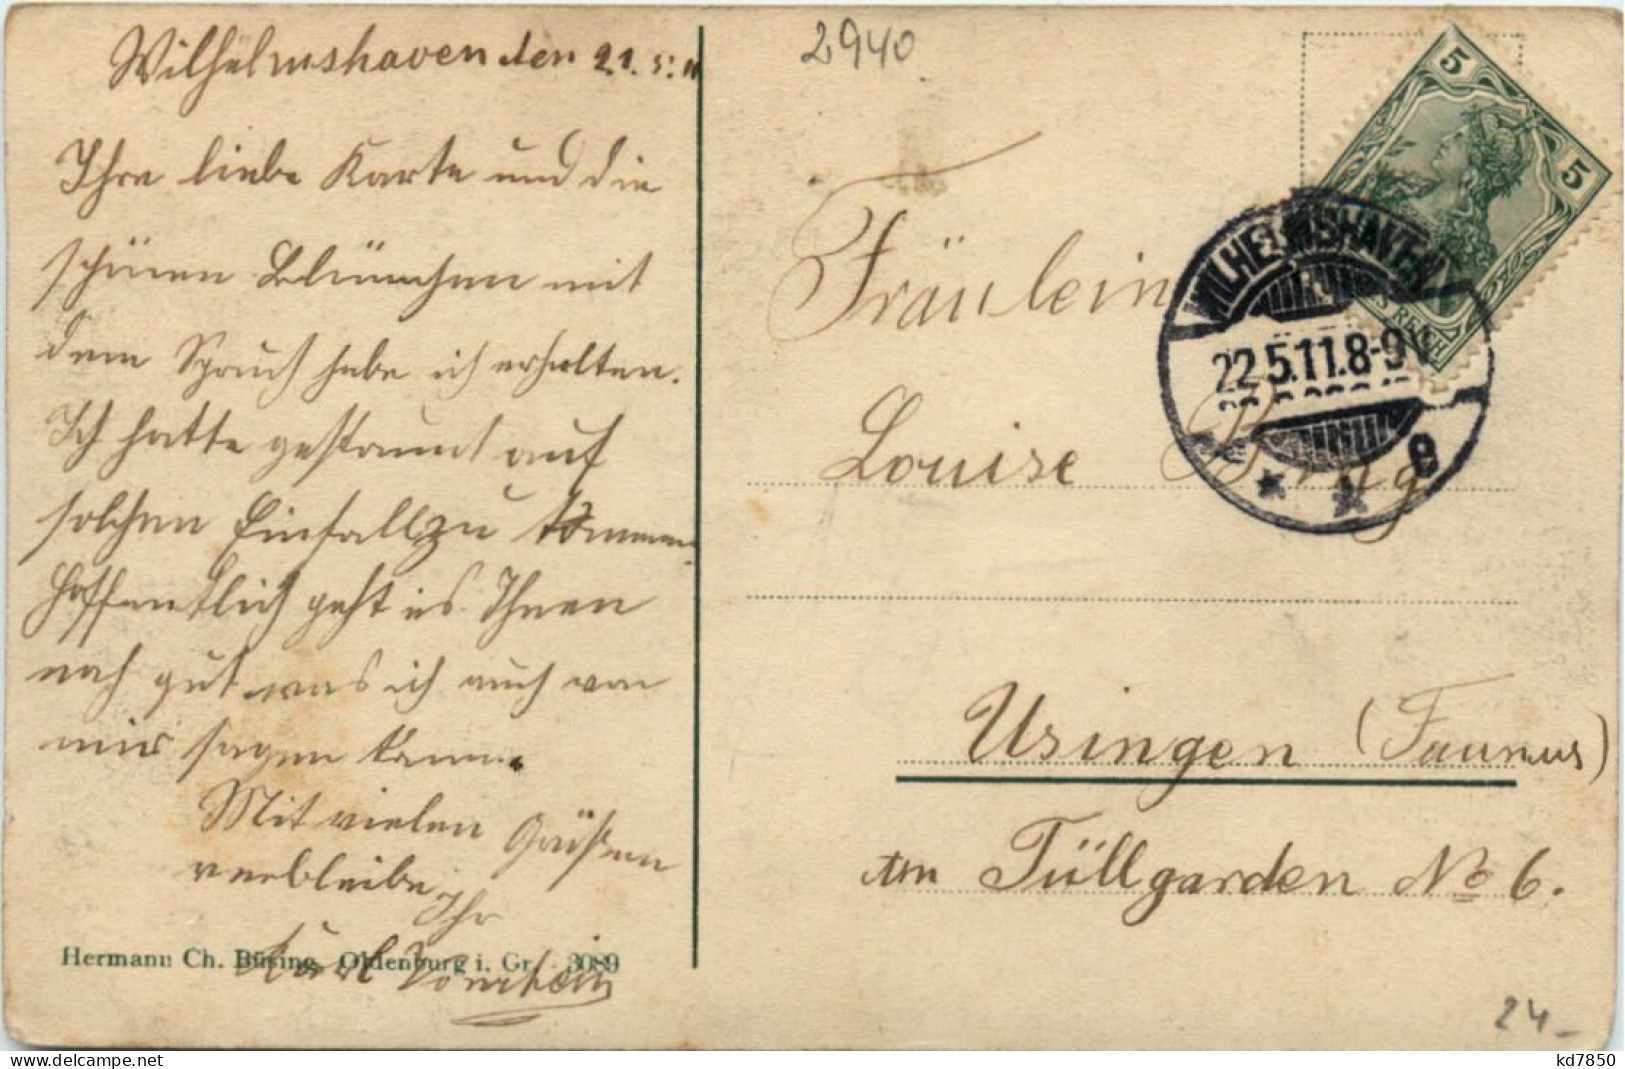 Wilhelmshaven den 21.5.11
Ihre liebe Karte und die
schönen Blümchen mit
dem Spruch habe ich erhalten.
Ich hatte gestaunt auf
solchen Einfall zu kommen
Hoffentlich geht es Ihnen
noch gut was ich auch von
mir sagen kann.
Mit vielen Grüßen
verbleibe
Ihr
Karl
Hermann Ch. Büsing, Oldenburg i. Gr. 3089
2940
5
5
REICH
WILHELMSHAVEN
22.5.11.8-9V
* * e
Fräulein
Louise
Usingen (Taunus)
am Füllgarden No 6.
24-
kd7850